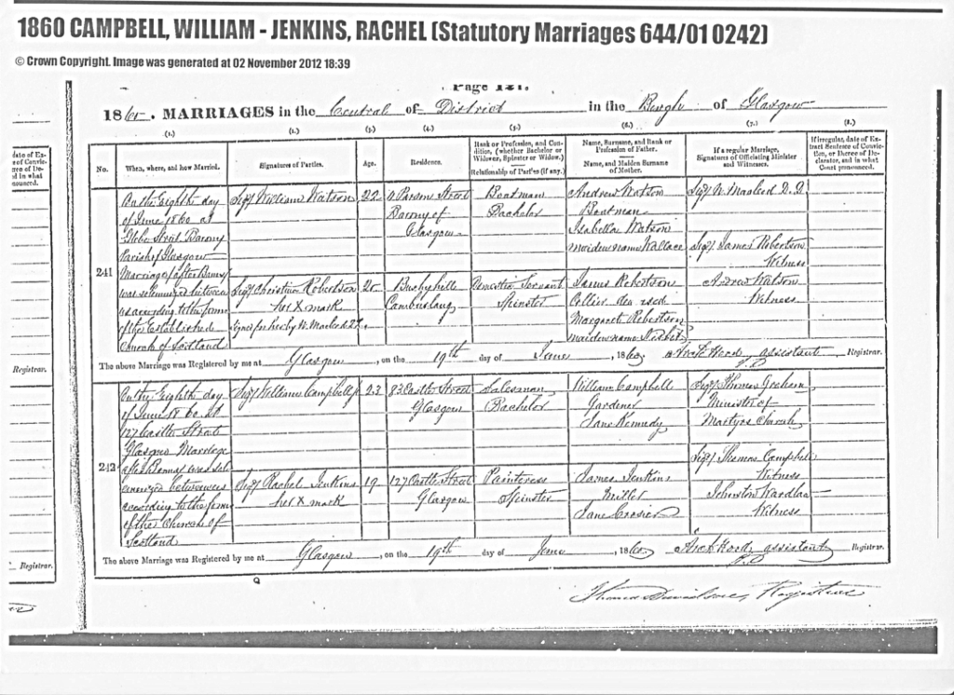 1860 CAMPBELL, WILLIAM - JENKINS, RACHEL (Statutory Marriages 644/01 0242)
© Crown Copyright. Image was generated at 02 November 2012 18:39
Page 121.
1860. MARRIAGES in the Central of District in the Burgh of Glasgow
(1.) (2.) (3.) (4.) (5.) (6.) (7.) (8.)
No.
When, where, and how Married.
Signatures of Parties.
Age.
Residence.
Rank or Profession, and Condition, (whether Bachelor or Widower, Spinster or Widow.)
Relationship of Parties (if any.)
Name, Surname, and Rank or Profession of Father.
Name, and Maiden Surname of Mother.
If a regular Marriage, Signatures of Officiating Minister and Witnesses.
If irregular, date of Extract Sentence of Conviction, or Decree of Declarator, and in what Court pronounced.
241
On the Eighth day
of June 1860 at
Glebe Street Barony
Parish of Glasgow
Marriage (after Banns)
was solemnized between us
according to the form
of the Established
Church of Scotland
Sigd William Watson
22
Street
Barony of
Glasgow
Boatman
Bachelor
Andrew Watson
Boatman
Isabella Watson
maiden name Wallace
Sigd N. Macleod D.D.
Sigd James Robertson
Witness
Andrew Watson
Witness
Sigd Christina Robertson
her X mark
Bushyhill
Cambuslang
Domestic Servant
Spinster
James Robertson
Collier deceased
Margaret Robertson
maiden name Nisbet
The above Marriage was Registered by me at Glasgow, on the 19th day of June, 1860, Archd Hood, assistant Registrar.
242
On the Eighth day
of June 1860 at
127 Castle Street
Glasgow Marriage
after Banns was sol
emnized between us
according to the form
of the Church of
Scotland
Sigd William Campbell
23
83 Castle Street
Glasgow
Salesman
Bachelor
William Campbell
Gardener
Jane Kennedy
Sigd Thomas Graham
Minister of
Martyrs Church
Sigd Thomas Campbell
Witness
Johnston Wardlaw
Witness
Sigd Rachel Jenkins
her X mark
19
127 Castle Street
Glasgow
Paintress
Spinster
James Jenkins
Miller
Jane Crosier
The above Marriage was Registered by me at Glasgow, on the 19th day of June, 1860, Archd Hood, assistant Registrar.
Thomas Davidson, Registrar
Registrar.
Registrar.